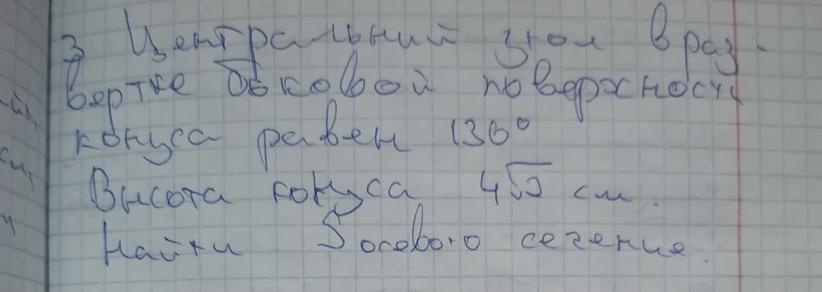 3 Центральный угол в раз-
вертке боковой поверхности
конуса равен 130°
Высота конуса 4√2 см.
Найти S осевого сечения.